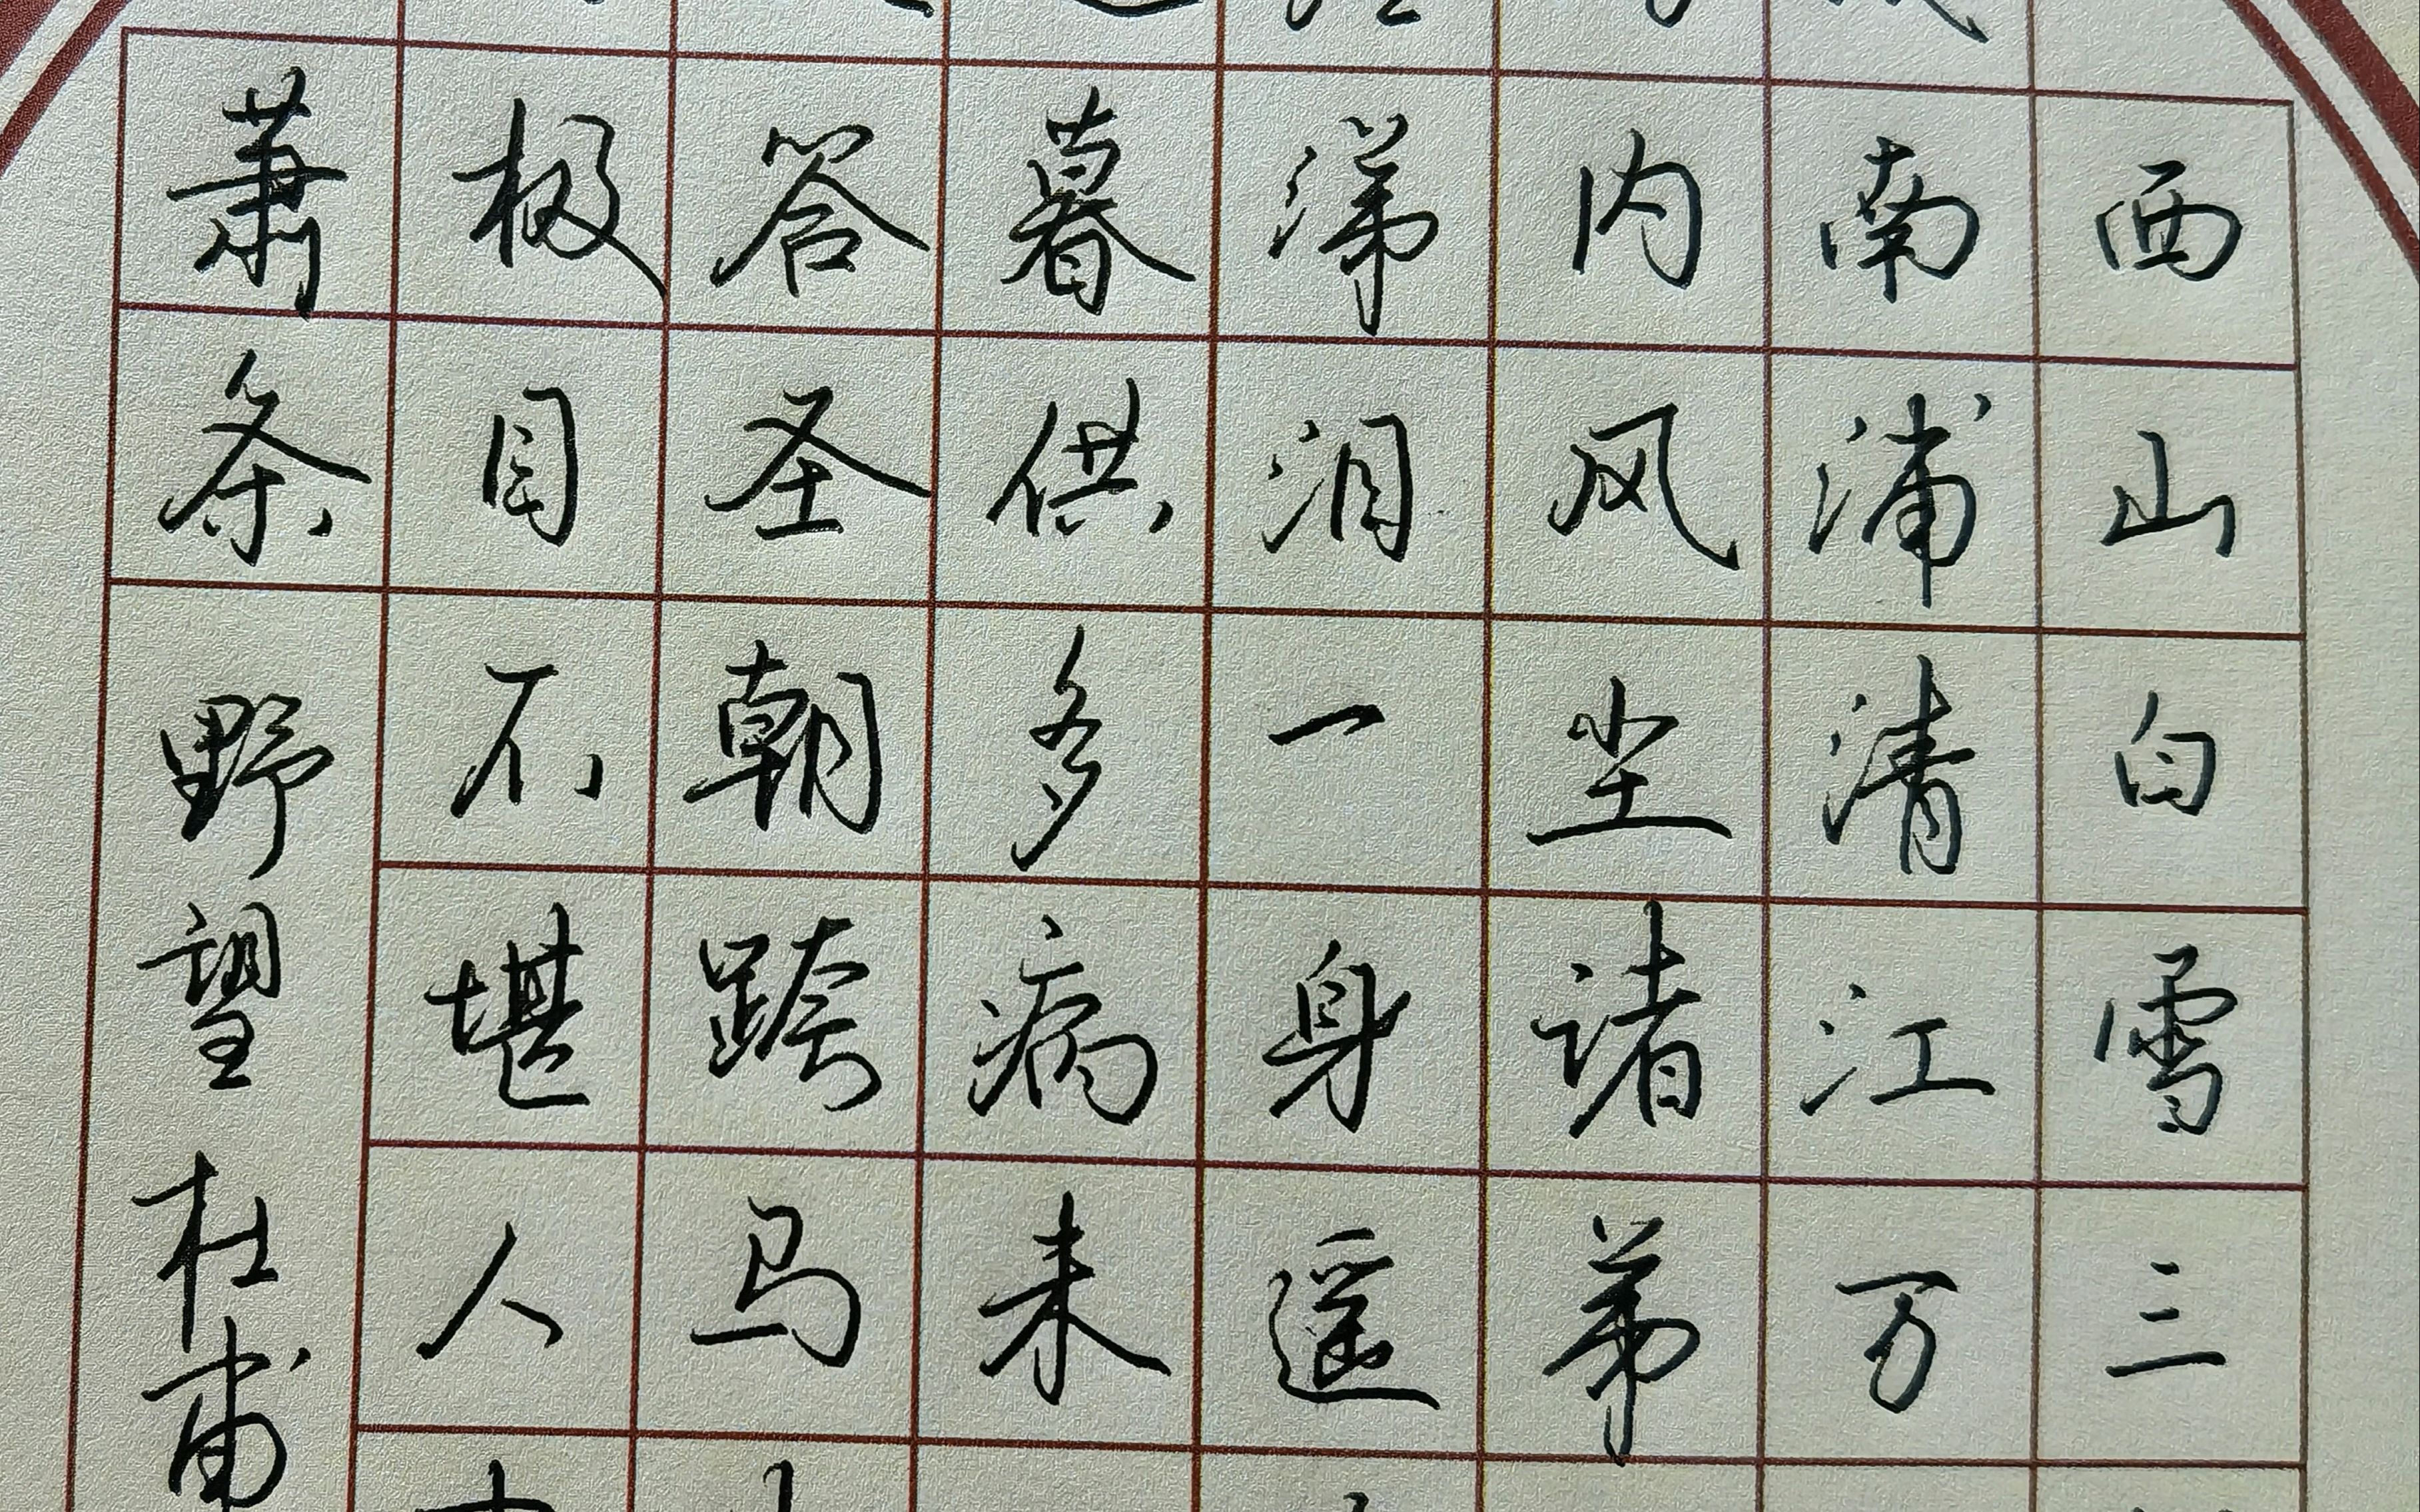 西山白雪三
南浦清江万
内风尘诸弟
涕泪一身遥
暮供多病未
答圣朝跨马
极目不堪人
萧条野望杜甫